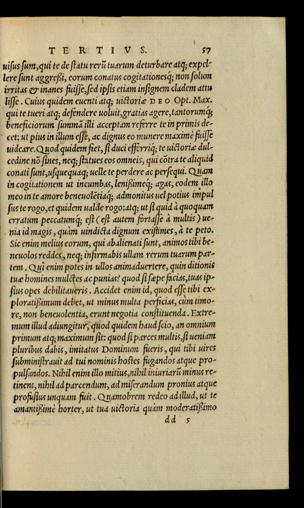 TERTIVS. 57
uisus sum, qui te de statu rerū tuarum deturbare atq; expel-
lere sunt aggressi, eorum conatus cogitationesq; non solum
irritas & inanes fuisse, sed ipsis etiam insignem cladem attu
lisse. Cuius quidem euenti atq; uictoriæ DEO Opt. Max.
qui te tueri atq; defendere uoluit, gratias agere, tantorumq;
beneficiorum summā illi acceptam referre te in primis de-
cet: ut pius in illum esse, ac dignus eo munere maximè fuisse
uideare. Quod quidem fiet, si duci efferriq; te uictoriæ dul-
cedine nō sines, neq; statues eos omneis, qui cōtra te aliquid
conati sunt, usquequaq; uelle te perdere ac persequi. Quam
in cogitationem ut incumbas, lenissimeq; agas, eodem illo
meo in te amore beneuolētiaq; admonitus uel potius impul
sus te rogo, et quidem ualde rogo: atq; ut si quid à quoquam
erratum peccatumq; est (est autem fortasse à multis) ue-
nia id magis, quàm uindicta dignum existimes, à te peto.
Sic enim melius eorum, qui abalienati sunt, animos tibi be-
neuolos reddes, neq; infirmabis ullam rerum tuarum par-
tem. Qui enim potes in ullos animaduertere, quin ditionis
tuæ homines mulctes ac punias? quod si sæpe facias, tuas ip-
sius opes debilitaueris. Accidet enim id, quod esse tibi ex-
ploratissimum debet, ut minus multa perficias, cùm timo-
re, non beneuolentia, erunt negotia constituenda. Extre-
mum illud adiungitur, quod quidem haud scio, an omnium
primum atq; maximum sit: quod si parces multis, si ueniam
pluribus dabis, imitatus Dominum fueris, qui tibi uires
subministrauit ad tui nominis hostes fugandos atque pro-
pulsandos. Nihil enim illo mitius, nihil iniuriarū minus re-
tinens, nihil ad parcendum, ad miserandum pronius atque
profusius unquam fuit. Quamobrem redeo ad illud, ut te
amantissimè horter, ut tua uictoria quàm moderatissimo
dd 5